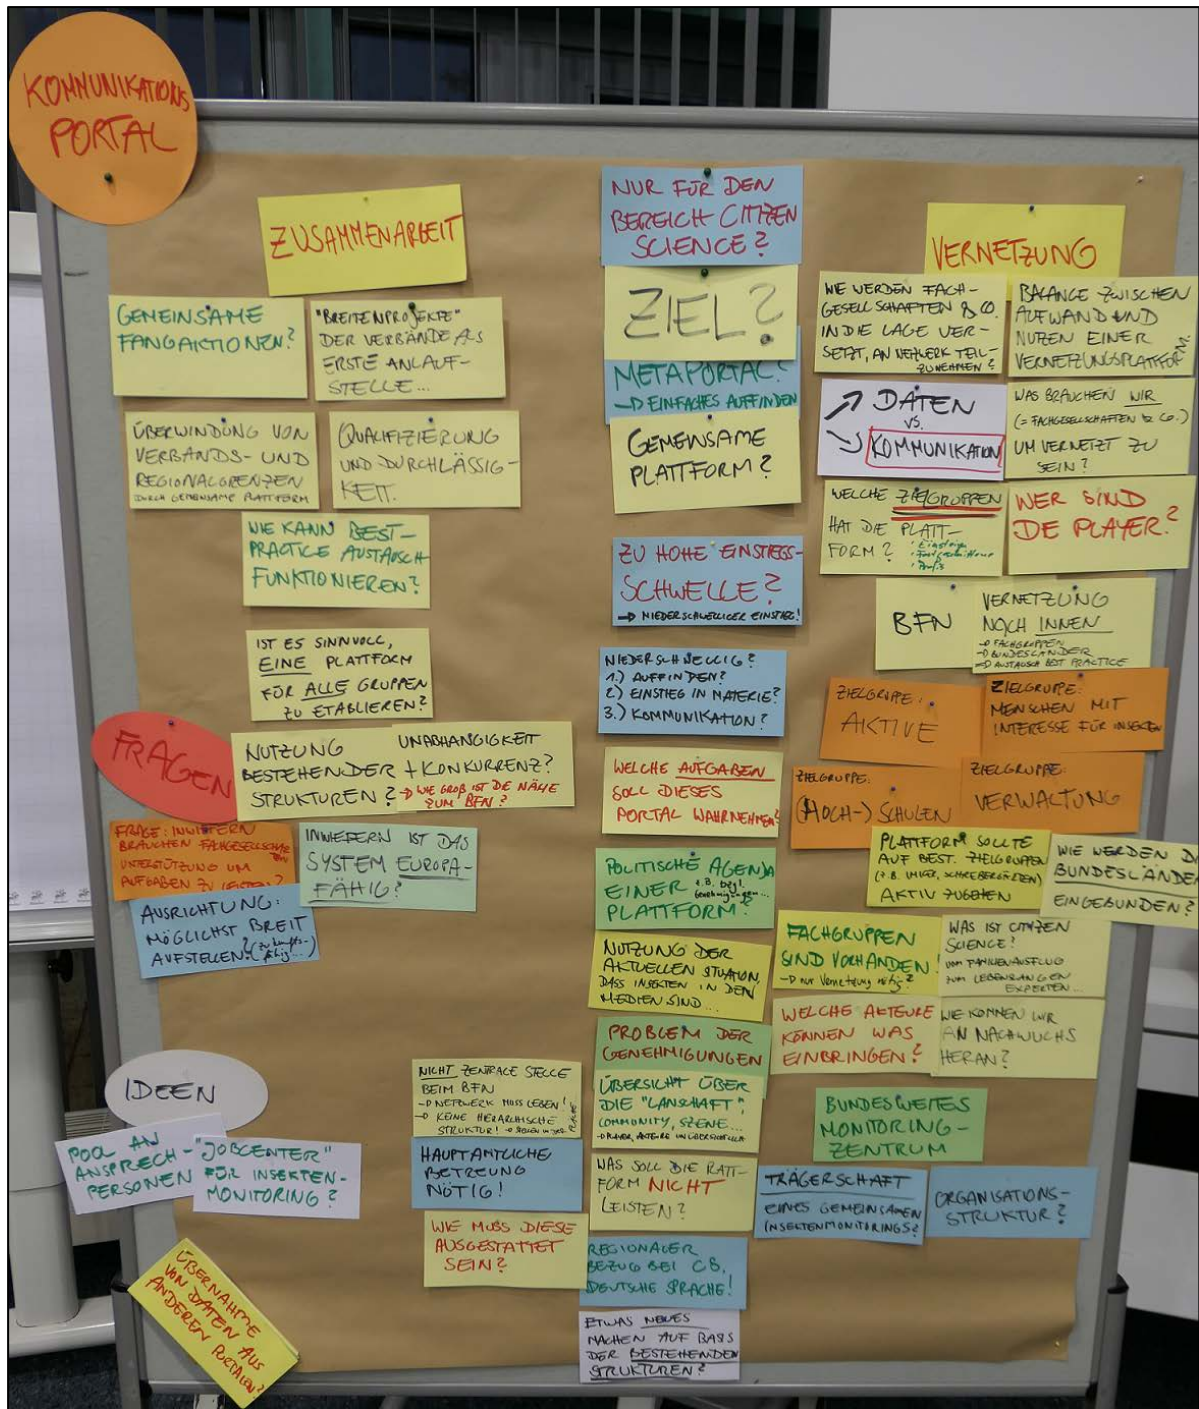 KOMMUNIKATIONS
PORTAL
ZUSAMMENARBEIT
GEMEINSAME
FANGAKTIONEN?
"BREITENPROJEKTE"
DER VERBÄNDE ALS
ERSTE ANLAUF-
STELLE...
ÜBERWINDUNG VON
VERBANDS- UND
REGIONALGRENZEN
DURCH GEMEINSAME PLATTFORM
QUALIFIZIERUNG
UND DURCHLÄSSIG-
KEIT.
WIE KANN BEST-
PRACTICE AUSTAUSCH
FUNKTIONIEREN?
IST ES SINNVOLL,
EINE PLATTFORM
FÜR ALLE GRUPPEN
ZU ETABLIEREN?
FRAGEN
NUTZUNG
BESTEHENDER
STRUKTUREN?
UNABHÄNGIGKEIT
+ KONKURRENZ?
→ WIE GROß IST DIE NÄHE
ZUM BFN?
FRAGE: INWIEFERN
BRAUCHEN FACHGESELLSCHAFTEN
UNTERSTÜTZUNG UM
AUFGABEN ZU LEISTEN?
INWIEFERN IST DAS
SYSTEM EUROPA-
FÄHIG?
AUSRICHTUNG:
MÖGLICHST BREIT
AUFSTELLEN? (zukunfts-
fähig...)
IDEEN
POOL AN
ANSPRECH-
PERSONEN
"JOBCENTER"
FÜR INSEKTEN-
MONITORING?
ÜBERNAHME
VON DATEN AUS
ANDEREN PORTALEN?
NICHT ZENTRALE STELLE
BEIM BFN
→ NETZWERK MUSS LEBEN!
→ KEINE HIERARCHISCHE
STRUKTUR!
HAUPTAMTLICHE
BETREUUNG
NÖTIG!
WIE MUSS DIESE
AUSGESTATTET
SEIN?
NUR FÜR DEN
BEREICH CITIZEN
SCIENCE?
ZIEL?
METAPORTAL?
→ EINFACHES AUFFINDEN
GEMEINSAME
PLATTFORM?
ZU HOHE EINSTIEGS-
SCHWELLE?
→ NIEDERSCHWELLIGER EINSTIEG!
NIEDERSCHWELLIG?
1.) AUFFINDEN?
2.) EINSTIEG IN MATERIE?
3.) KOMMUNIKATION?
WELCHE AUFGABEN
SOLL DIESES
PORTAL WAHRNEHMEN?
POLITISCHE AGENDA
EINER z.B. bzgl.
Genehmigungen...
PLATTFORM?
NUTZUNG DER
AKTUELLEN SITUATION,
DASS INSEKTEN IN DEN
MEDIEN SIND...
PROBLEM DER
GENEHMIGUNGEN
ÜBERSICHT ÜBER
DIE "LANSCHAFT",
COMMUNITY, SZENE...
WAS SOLL DIE PLATT-
FORM NICHT
LEISTEN?
REGIONALER
BEZUG BEI CS,
DEUTSCHE SPRACHE!
ETWAS NEUES
MACHEN AUF BASIS
DER BESTEHENDEN
STRUKTUREN?
VERNETZUNG
WIE WERDEN FACH-
GESELLSCHAFTEN & CO.
IN DIE LAGE VER-
SETZT, AN NETZWERK TEIL-
ZUNEHMEN?
BALANCE ZWISCHEN
AUFWAND UND
NUTZEN EINER
VERNETZUNGSPLATTFORM.
DATEN
VS.
KOMMUNIKATION
WAS BRAUCHEN WIR
(= FACHGESELLSCHAFTEN & CO.)
UM VERNETZT ZU
SEIN?
WELCHE ZIELGRUPPEN
HAT DIE PLATT-
FORM?
• Einsteiger
• Fortgeschrittene
• Profis
WER SIND
DIE PLAYER?
BFN
VERNETZUNG
NACH INNEN
→ FACHGRUPPEN
→ BUNDESLÄNDER
→ AUSTAUSCH BEST PRACTICE
ZIELGRUPPE:
AKTIVE
ZIELGRUPPE:
MENSCHEN MIT
INTERESSE FÜR INSEKTEN
ZIELGRUPPE:
(HOCH-) SCHULEN
ZIELGRUPPE:
VERWALTUNG
PLATTFORM SOLLTE
AUF BEST. ZIELGRUPPEN
(z.B. IMKER, SCHREBERGÄRTEN)
AKTIV ZUGEHEN
WIE WERDEN DI
BUNDESLÄNDER
EINGEBUNDEN?
FACHGRUPPEN
SIND VORHANDEN!
→ nur Vernetzung nötig?
WAS IST CITIZEN
SCIENCE?
VOM FAMILIENAUSFLUG
ZUM LEBENSLANGEN
EXPERTEN...
WELCHE AKTEURE
KÖNNEN WAS
EINBRINGEN?
WIE KOMMEN WIR
AN NACHWUCHS
HERAN?
BUNDESWEITES
MONITORING-
ZENTRUM
TRÄGERSCHAFT
EINES GEMEINSAMEN
INSEKTENMONITORINGS?
ORGANISATIONS-
STRUKTUR?